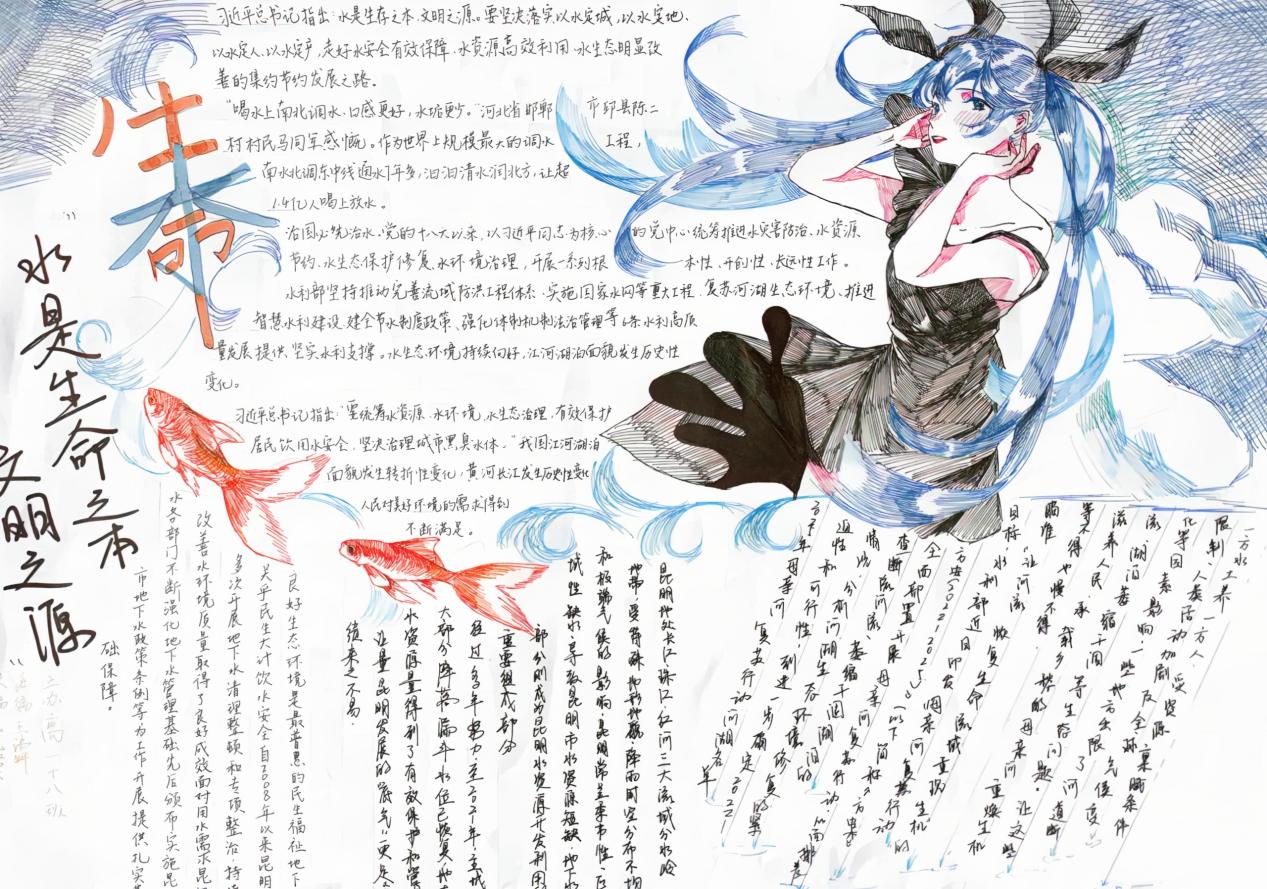 习近平总书记指出:水是生存之本、文明之源。要坚决落实以水定城,以水定地、
以水定人、以水定产,走好水安全有效保障、水资源高效利用、水生态明显改
善的集约节约发展之路。
"喝水上南北调水,口感更好,水垢更少。"河北省邯郸 市邱县陈二
村村民马同军感慨。作为世界上规模最大的调水 工程,
南水北调东中线通水7年多,汩汩清水润北方,让超
1.4亿人喝上放水。
治国必先治水。党的十八大以来,以习近平同志为核心 的党中心统筹推进水灾害防治、水资源
节约、水生态保护修复、水环境治理,开展一系列根 本性、开创性、长远性工作。
水利部坚持推动完善流域防洪工程体态、实施国家水网等重大工程、复苏河湖生态环境、推进
智慧水利建设、建全节水制度政策、强化体制机制法治管理等6条水利高质
量发展提供坚实水利支撑。水生态环境持续向好,江河湖泊面貌发生历史性
变化。
习近平总书记指出:"要统筹水资源、水环境,水生态治理,有效保护
居民饮用水安全,坚决治理城市黑臭水体。"我国江河湖泊
面貌发生转折性变化,黄河长江发生历史性变化
人民对美好环境的需求得到
不断满足。
生命
"水是生命之本
文明之源"
一方水土养一方人。受资源禀赋条件
限制、人类活动加剧及全球气候变
化等因素影响,一些地方出现了河道断
流、湖泊萎缩干涸等生态问题。
滋养人民、承载乡愁的母亲河,让这些
等不得也慢不得。
瞄准"让河流恢复生命、流域重现生机"
目标,水利部近日印发
方案(2022-2025)(以下简称"方案"
全面部署开展母亲河复苏行动
查断流河流、萎缩干涸湖泊的
情况,分析河湖生态环境修复的紧
迫性和可行性,到进一步确定2022
年母亲河复苏行动河湖名单
昆明地处长江、珠江、红河三大流域分水岭
地带,受特殊地形地貌、降雨时空分布不均
和极端气候的影响,昆明常呈季节性、区
域性缺水,导致昆明市水资源短缺,地下水
部分则成为昆明水资源开发利用
重要组成部分
经过多年努力,至2021年,主城
大部分降落漏斗水位已恢复,地
水资源量得到了有效保护和管
让量昆明发展的"底气"更足
绩来之不易。
良好生态环境是最普惠的民生福祉地下
关乎民生大计饮水安全自2008年以来昆明
多次开展地下水清理整顿和专项整治,持续
改善水环境质量取得了良好成效面对用水需求昆
水各部门不断强化地下水管理基础先后颁布实施昆
市地下水政策条例等为工作开展提供扎实
础保障。